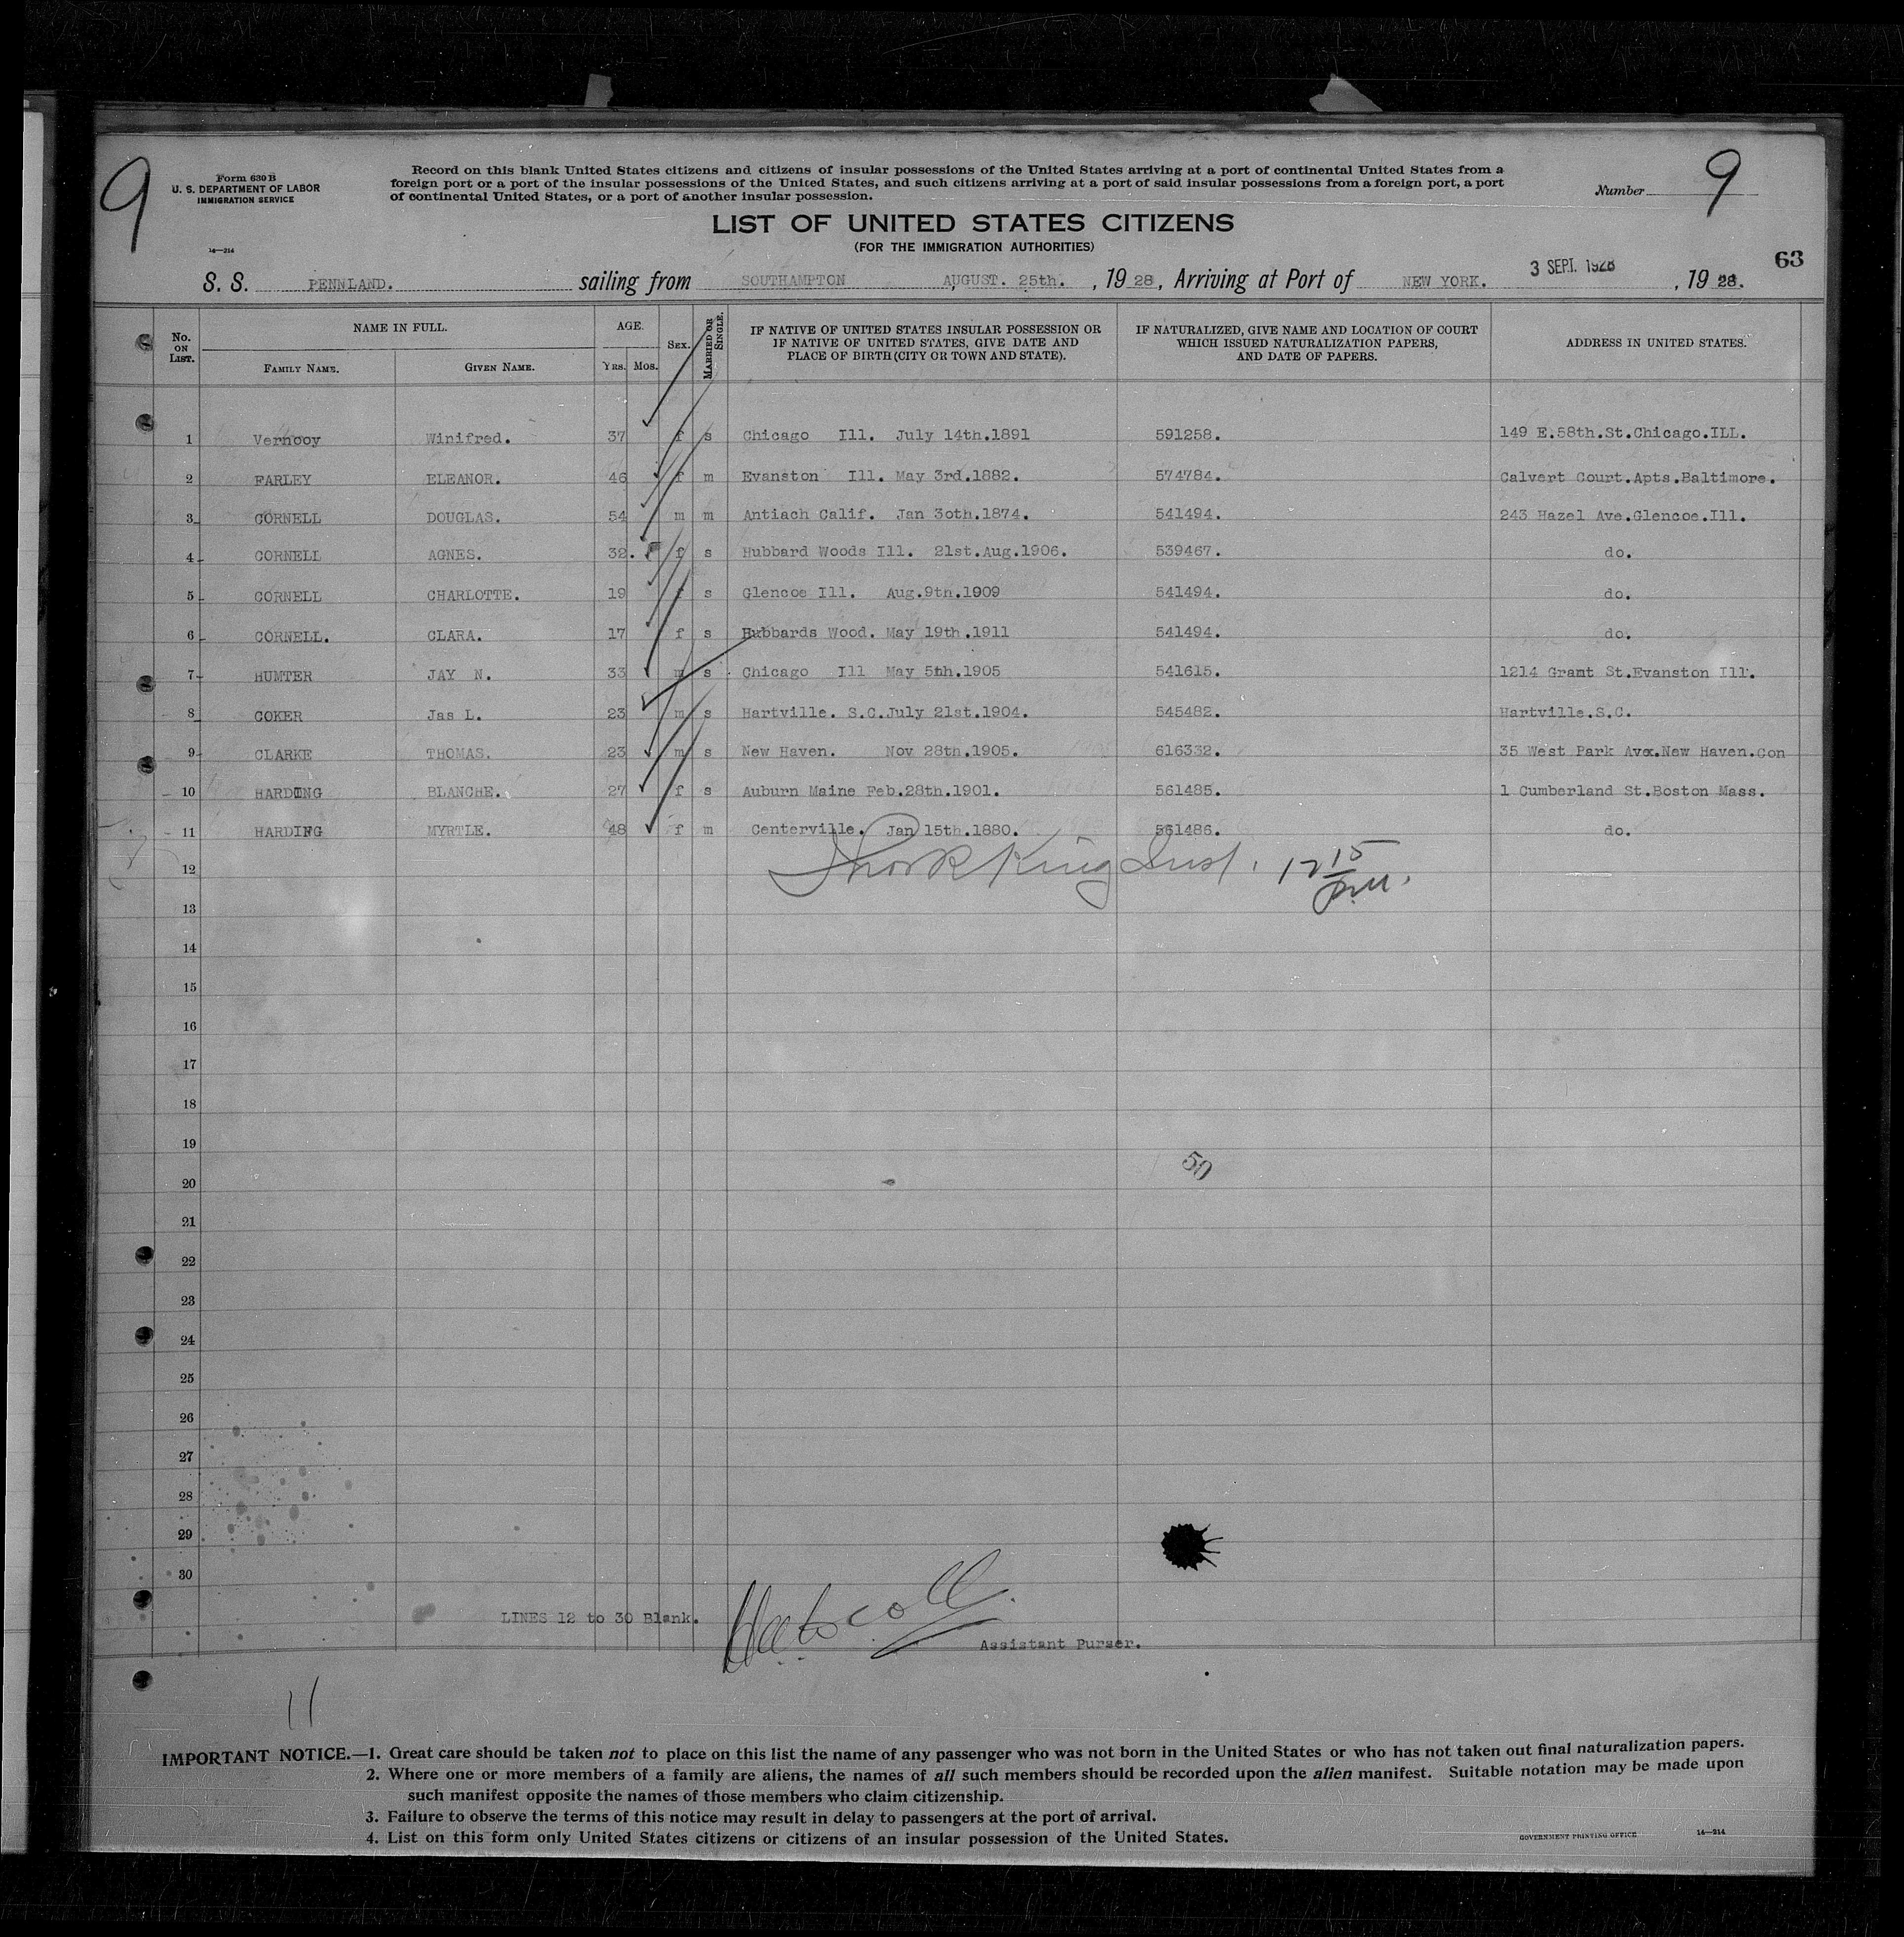 9
Form 630 B
U. S. DEPARTMENT OF LABOR
IMMIGRATION SERVICE
14—214
Record on this blank United States citizens and citizens of insular possessions of the United States arriving at a port of continental United States from a
foreign port or a port of the insular possessions of the United States, and such citizens arriving at a port of said insular possessions from a foreign port, a port
of continental United States, or a port of another insular possession.
Number 9
LIST OF UNITED STATES CITIZENS
(FOR THE IMMIGRATION AUTHORITIES)
63
S. S. PENNLAND. sailing from SOUTHAMPTON AUGUST. 25th. , 19 28 , Arriving at Port of NEW YORK. 3 SEPT. 1928 , 19 28.
No. ON LIST. NAME IN FULL. AGE. SEX. MARRIED OR SINGLE. IF NATIVE OF UNITED STATES INSULAR POSSESSION OR IF NATIVE OF UNITED STATES, GIVE DATE AND PLACE OF BIRTH (CITY OR TOWN AND STATE). IF NATURALIZED, GIVE NAME AND LOCATION OF COURT WHICH ISSUED NATURALIZATION PAPERS, AND DATE OF PAPERS. ADDRESS IN UNITED STATES.
FAMILY NAME. GIVEN NAME. YRS. MOS.
1 Vernooy Winifred. 37 f s Chicago Ill. July 14th.1891 591258. 149 E.58th.St.Chicago.ILL.
2 FARLEY ELEANOR. 46 f m Evanston Ill. May 3rd.1882. 574784. Calvert Court.Apts.Baltimore.
3 CORNELL DOUGLAS. 54 m m Antiach Calif. Jan 3oth.1874. 541494. 243 Hazel Ave.Glencoe.Ill.
4 CORNELL AGNES. 32. f s Hubbard Woods Ill. 21st.Aug.1906. 539467. do.
5 CORNELL CHARLOTTE. 19 f s Glencoe Ill. Aug.9th.1909 541494. do.
6 CORNELL. CLARA. 17 f s Hubbards Wood. May 19th.1911 541494. do.
7 HUMTER JAY N. 33 m s Chicago Ill May 5th.1905 541615. 1214 Grant St.Evanston Ill.
8 COKER Jas L. 23 m s Hartville. S.C.July 21st.1904. 545482. Hartville.S.C.
9 CLARKE THOMAS. 23 m s New Haven. Nov 28th.1905. 616332. 35 West Park Ave.New Haven.Con
10 HARDING BLANCHE. 27 f s Auburn Maine Feb.28th.1901. 561485. 1 Cumberland St.Boston Mass.
11 HARDING MYRTLE. 48 f m Centerville. Jan 15th.1880. 561486. do.
12 King Insp. 12 15 pm.
13
14
15
16
17
18
19
50
20
21
22
23
24
25
26
27
28
29
30
LINES 12 to 30 Blank.
Assistant Purser.
11
IMPORTANT NOTICE.—1. Great care should be taken not to place on this list the name of any passenger who was not born in the United States or who has not taken out final naturalization papers.
2. Where one or more members of a family are aliens, the names of all such members should be recorded upon the alien manifest. Suitable notation may be made upon
such manifest opposite the names of those members who claim citizenship.
3. Failure to observe the terms of this notice may result in delay to passengers at the port of arrival.
4. List on this form only United States citizens or citizens of an insular possession of the United States.
GOVERNMENT PRINTING OFFICE 14—214